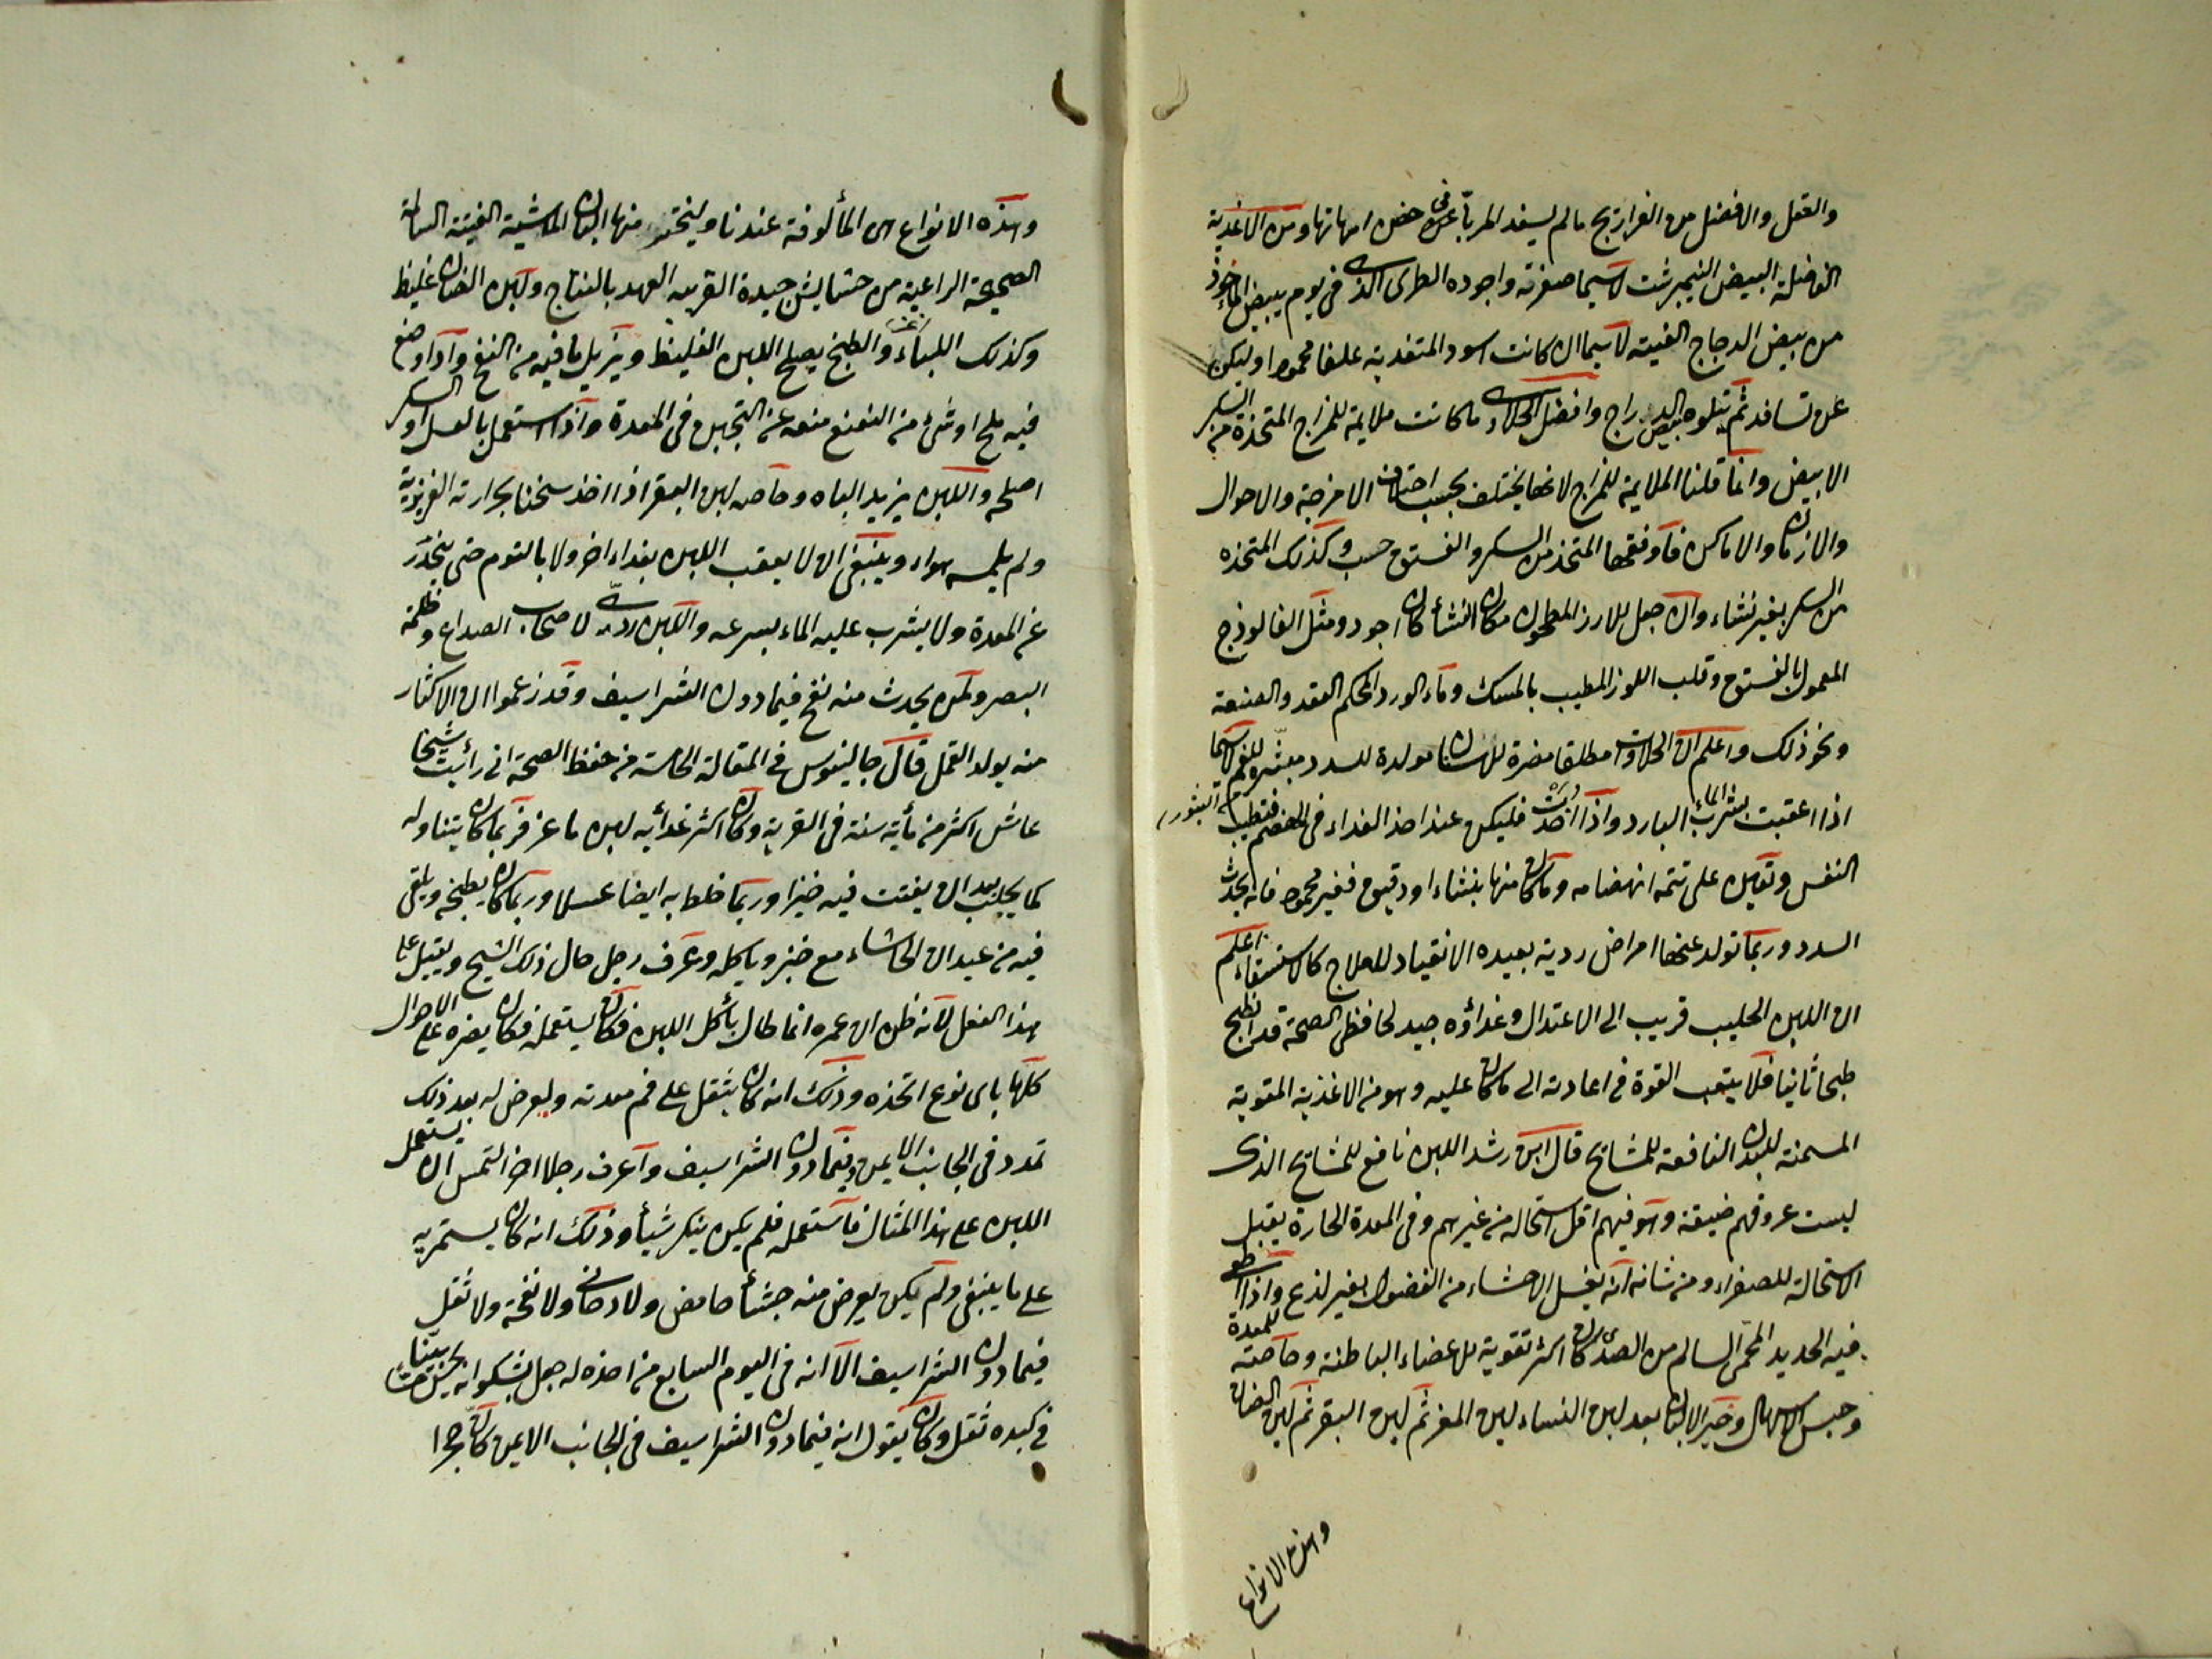 والعقل والافضل من الفراريج ما لم يسفد المربا عن فى حضن امهاتها ومن الاغذية
الفاضلة البيض النيمبرشت لاسيما صفرته واجوده الطرى الذى فى يوم يبيض المأخوذ
من بيض الدجاج الفتية لاسيما ان كانت اسود المتغذية علفا محمودا وليكن
عن تسافد ثم يتلوه بيض الدراج وافضل الحلاوى ما كانت ملايمة للمزاج المتخذة من السكر
الابيض وانما قلنا الملايمة للمزاج لانها يختلف بحسب اختلاف الامزجة والاحوال
والازمان والاماكن فاوفقها المتخذ من السكر والفستق حسب وكذلك المتخذه
من السكر بغير نشاء وان جعل للارز المطحون مكان النشأ كان اجود ومثل الفالوذج
المعمول بالفستق وقلب اللوز المطيب بالمسك وماء الورد المحكم العقد والصنعة
ونحو ذلك واعلم ان الحلاوات مطلقا مضرة للاسنان مولدة للسدد مبثرة للفم لاسيما
اذا اعقبت بشرب الماء البارد واذا اخذت فليكن عند اخذ الغداء فى الهضم فتطيب
البثور
النفس وتعين على تتمة انهضامه وما كان منها بنشاء او دقيق فغير محمود فانه يحدث
السدد وربما تولد عنها امراض ردية بعيده الانقياد للعلاج كالاستسقاء اعلم
ان اللبن الحليب قريب الى الاعتدال وغذاؤه جيد لحافظى الصحة قد انطبخ
طبخا ثانيا فلا يتعب القوة فى اعادته الى ما كان عليه وهو من الاغذية المقوية
المسمنة للبدن النافعة للمشايخ قال ابن رشد اللبن نافع للمشايخ الذى
ليست عروقهم ضيقة وهو فيهم اقل استحاله من غيرهم وفى المعدة الحارة يقبل
الاستحالة للصفراء ومن شانه انه يغسل الاحشاء من الفضول بغير لذع واذا اطفى
فيه الحديد المحمى السالم من الصدى كان اكثر تقوية للاعضاء الباطنة وخاصته للمعدة
وحبس الاسهال وخير الالبان بعد لبن النساء لبن المعز ثم لبن البقر ثم لبن الضان
وهذه الانواع
وهذه الانواع هى المألوفة عندنا وليختر منها البان الماشية الفتية السالمة
الصحيحة الراعية من حشايش جيدة القريبه العهد بالنتاج ولبن الضان غليظ
وكذلك اللباء والطبخ يصلح اللبن الغليظ ويزيل ما فيه من النفخ واذا وضع
فيه ملح او شئ من النعنع منعه عن التجبن فى المعدة واذا استعمل بالعسل او السكر
اصلح واللبن يزيد الباه وخاصه لبن البقر اذا اخذ سخنا بحرارته الغريزية
ولم يلمسه هواء وينبغى ان لا يعقب اللبن بغداء اخر ولا بالنوم حتى ينحدر
عن المعدة ولا يشرب عليه الماء بسرعه واللبن ردى لاصحاب الصداع وظلمة
البصر ولمن يحدث منه نفخ فيما دون الشراسيف وقد زعموا ان الاكثار
منه يولد القمل قال جالينوس فى المقالة الخامسة من حفظ الصحة انى رأيت شيخا
عاش اكثر من مأية سنة فى القرية وكان اكثر غذائه لبن ماعز فربما كان يتناوله
كما يحلب بعد ان يفتت فيه خبزا وربما خلط به ايضا عسلا وربما كان يطبخه ويلقى
فيه من عيدان الحاشاء مع خبز وياكله وعرف رجل حال ذلك الشيخ ويقبل على
هذا الفعل لانه ظن ان عمره انما طال بأكل اللبن فكان يستعمله فكان يضره على الاحوال
كلها باى نوع اتخذه وذلك انه كان يثقل على فم معدته ويعرض له بعد ذلك
تمدد فى الجانب الايمن وفيما دون الشراسيف واعرف رجلا اخر التمس ان يستعمل
اللبن على هذا المثال فاستعمله فلم يكن ينكر شيأ وذلك انه كان يستمريه
على ما ينبغى ولم يكن يعرض منه جشأ حامض ولا دخانى ولا نفخة ولا ثقل
فيما دون الشراسيف الا انه فى اليوم السابع من اخذه له جعل يشكو انه يحس
فى كبده ثقل وكان يقول انه فيما دون الشراسيف فى الجانب الايمن كان حجرا